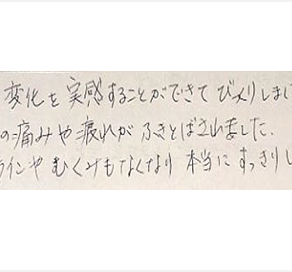 変化を実感することができてびっくりしまし
の痛みや疲れがふきとばされました.
ラインやむくみもなくなり 本当にすっきりし